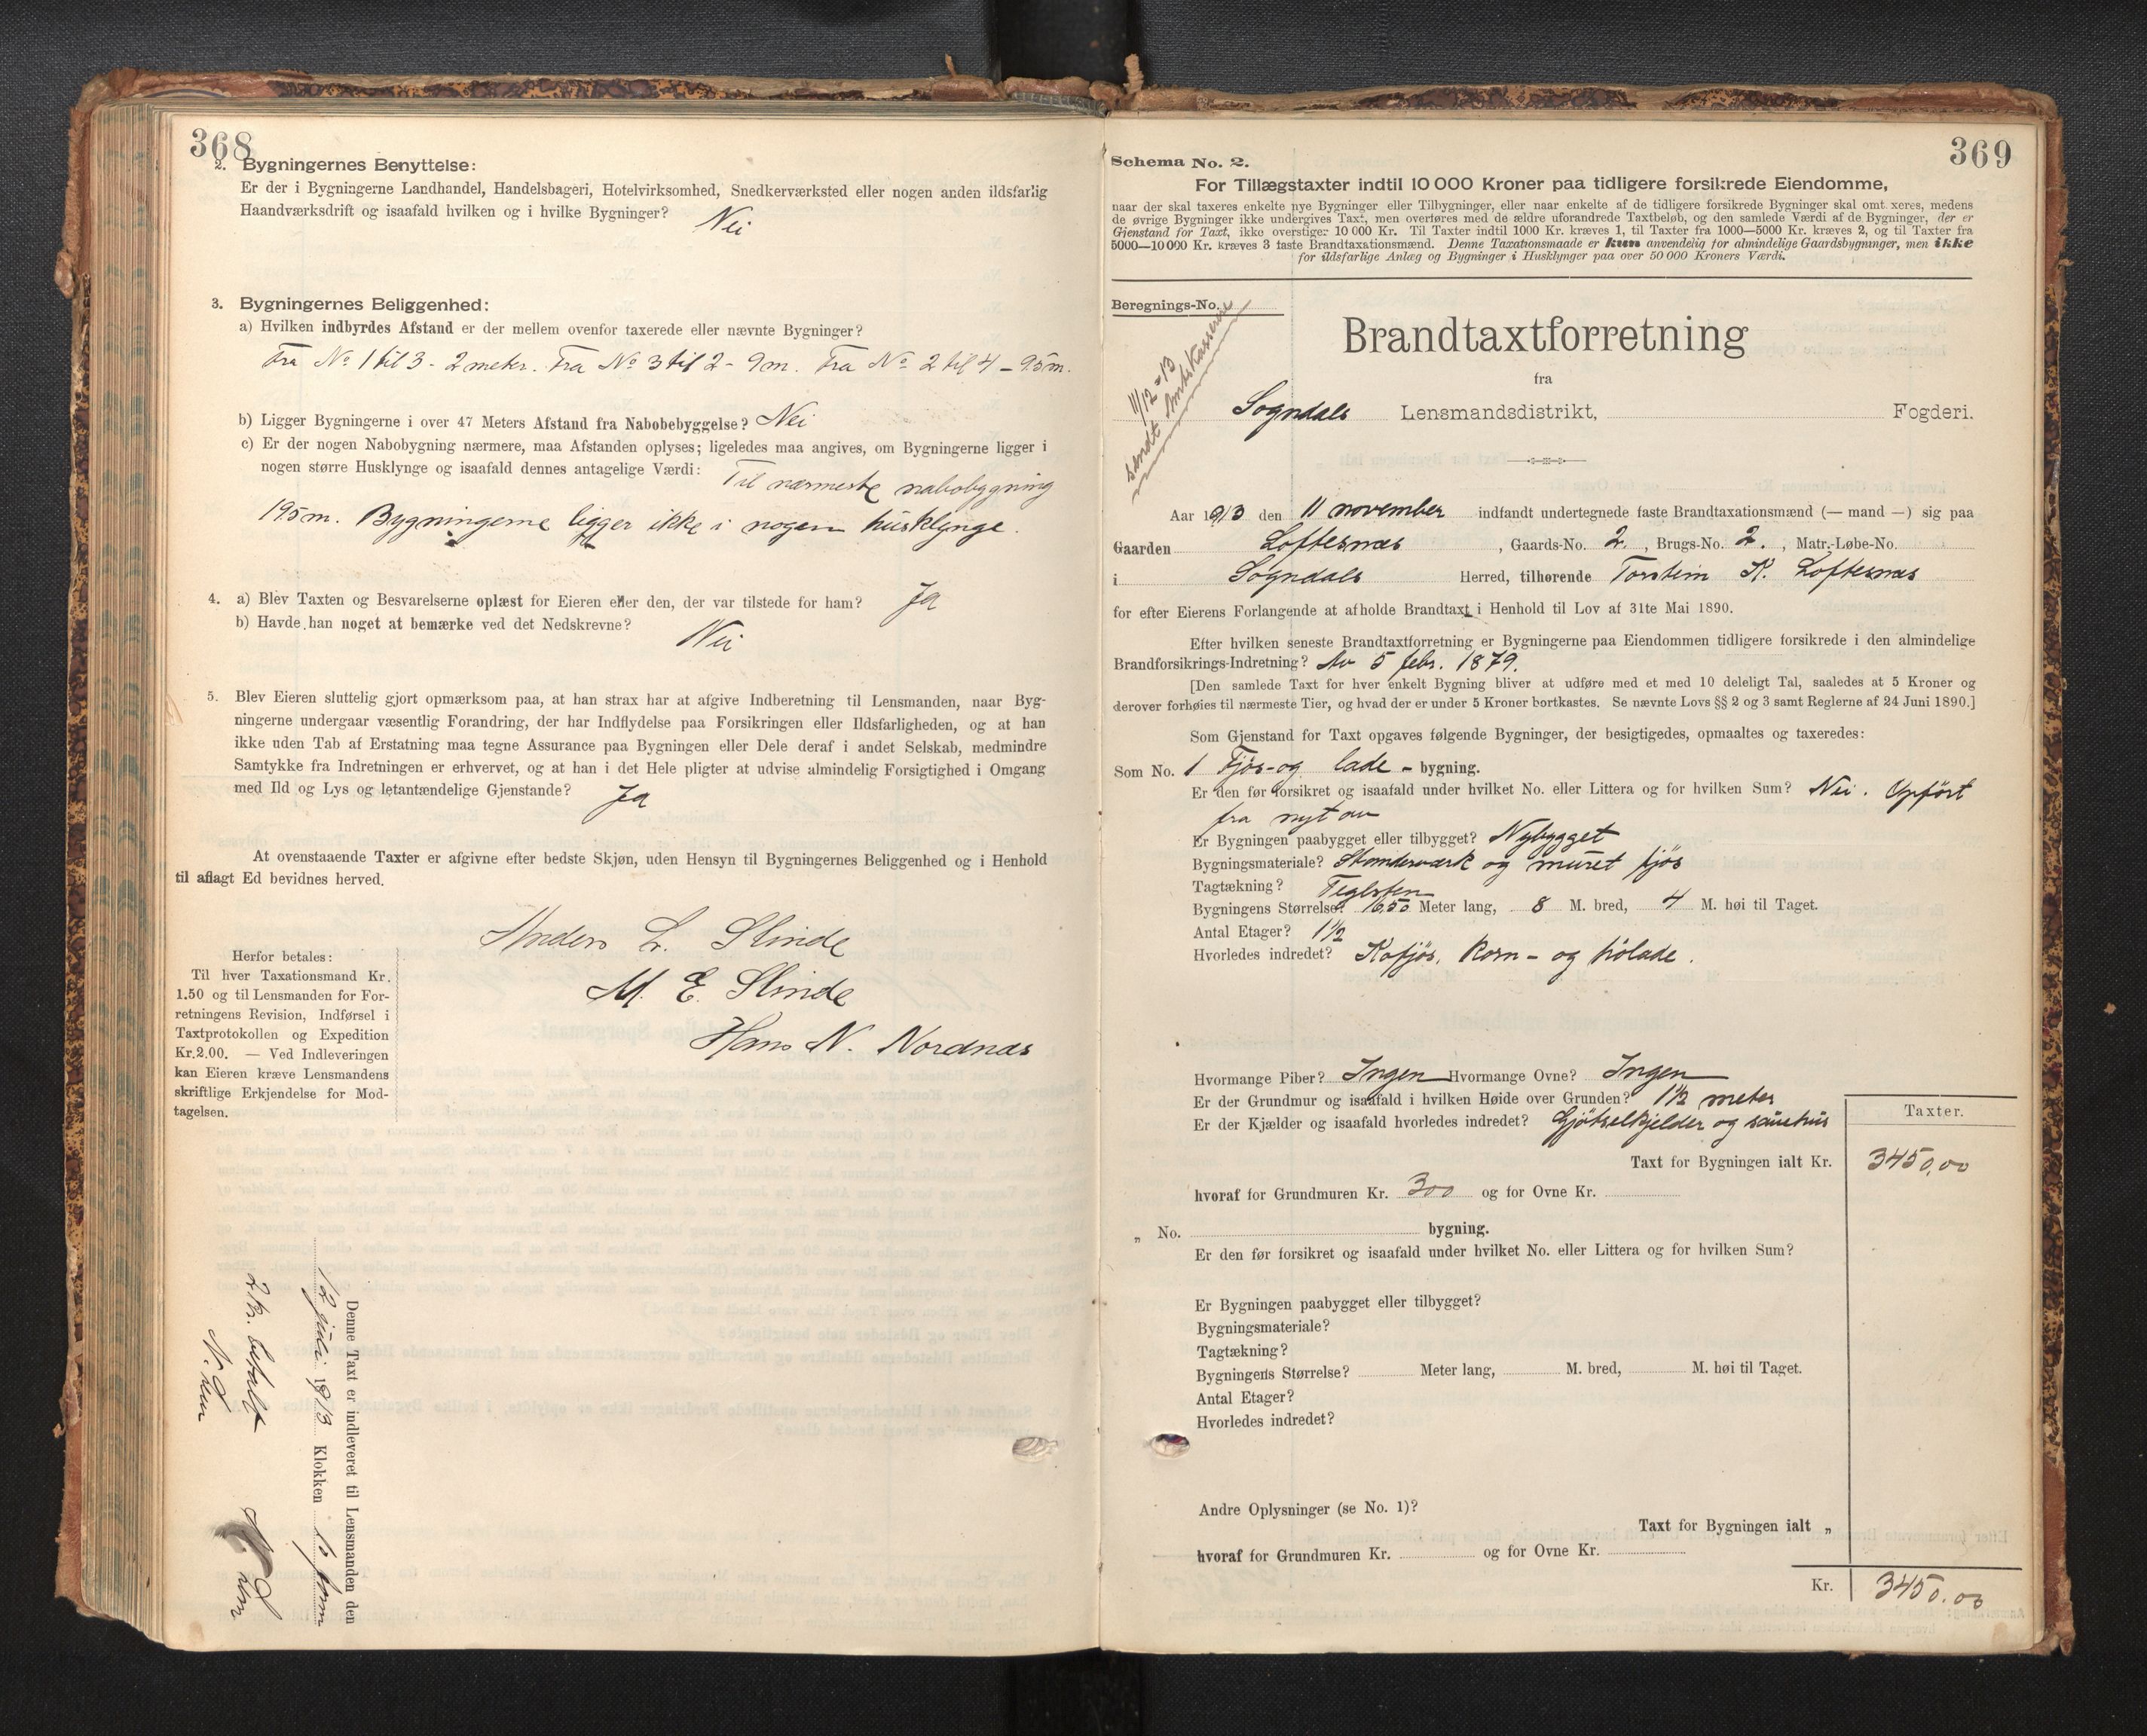 368
2. Bygningernes Benyttelse:
Er der i Bygningerne Landhandel, Handelsbageri, Hotelvirksomhed, Snedkerværksted eller nogen anden ildsfarlig
Haandværksdrift og isaafald hvilken og i hvilke Bygninger? Nei
3. Bygningernes Beliggenhed:
a) Hvilken indbyrdes Afstand er der mellem ovenfor taxerede eller nævnte Bygninger?
Fra No 1 til 3 - 2 meter. Fra No 3 til 2 - 9 m. Fra No 2 til 4 - 95 m.
b) Ligger Bygningerne i over 47 Meters Afstand fra Nabobebyggelse? Nei
c) Er der nogen Nabobygning nærmere, maa Afstanden oplyses; ligeledes maa angives, om Bygningerne ligger i
nogen større Husklynge og isaafald dennes antagelige Værdi: Til nærmeste nabobygning
195 m. Bygningerne ligger ikke i nogen husklynge.
4. a) Blev Taxten og Besvarelserne oplæst for Eieren eller den, der var tilstede for ham? Ja
b) Havde han noget at bemærke ved det Nedskrevne? Nei
5. Blev Eieren sluttelig gjort opmærksom paa, at han strax har at afgive Indberetning til Lensmanden, naar Byg-
ningerne undergaar væsentlig Forandring, der har Indflydelse paa Forsikringen eller Ildsfarligheden, og at han
ikke uden Tab af Erstatning maa tegne Assurance paa Bygningen eller Dele deraf i andet Selskab, medmindre
Samtykke fra Indretningen er erhvervet, og at han i det Hele pligter at udvise almindelig Forsigtighed i Omgang
med Ild og Lys og letantændelige Gjenstande? Ja
At ovenstaaende Taxter er afgivne efter bedste Skjøn, uden Hensyn til Bygningernes Beliggenhed og i Henhold
til aflagt Ed bevidnes herved.
Anders L. Slinde
M. E. Slinde
Hans N. Nordnæs
Herfor betales:
Til hver Taxationsmand Kr.
1.50 og til Lensmanden for For-
retningens Revision, Indførsel i
Taxtprotokollen og Expedition
Kr. 2.00. — Ved Indleveringen
kan Eieren kræve Lensmandens
skriftlige Erkjendelse for Mod-
tagelsen.
Denne Taxt er indleveret til Lensmanden den
12 juli 1913 Klokken 10 form
2 kr. betalt
369
Schema No. 2.
For Tillægstaxter indtil 10 000 Kroner paa tidligere forsikrede Eiendomme,
naar der skal taxeres enkelte nye Bygninger eller Tilbygninger, eller naar enkelte af de tidligere forsikrede Bygninger skal omtaxeres, medens
de øvrige Bygninger ikke undergives Taxt, men overføres med de ældre uforandrede Taxtbeløb, og den samlede Værdi af de Bygninger, der er
Gjenstand for Taxt, ikke overstiger 10 000 Kr. Til Taxter indtil 1000 Kr. kræves 1, til Taxter fra 1000—5000 Kr. kræves 2, og til Taxter fra
5000—10 000 Kr. kræves 3 faste Brandtaxationsmænd. Denne Taxationsmaade er kun anvendelig for almindelige Gaardsbygninger, men ikke
for ildsfarlige Anlæg og Bygninger i Husklynger paa over 50 000 Kroners Værdi.
Beregnings-No.
11/12-13
sendt Amtskasserer
Brandtaxtforretning
fra
Sogndals Lensmandsdistrikt, Fogderi.
Aar 1913 den 11 november indfandt undertegnede faste Brandtaxationsmænd (— mand —) sig paa
Gaarden Loftesnæs, Gaards-No. 2, Brugs-No. 2., Matr.-Løbe-No.
i Sogndals Herred, tilhørende Torstein K. Loftesnæs
for efter Eierens Forlangende at afholde Brandtaxt i Henhold til Lov af 31te Mai 1890.
Efter hvilken seneste Brandtaxtforretning er Bygningerne paa Eiendommen tidligere forsikrede i den almindelige
Brandforsikrings-Indretning? Av 5 febr. 1879.
[Den samlede Taxt for hver enkelt Bygning bliver at udføre med et med 10 deleligt Tal, saaledes at 5 Kroner og
derover forhøies til nærmeste Tier, og hvad der er under 5 Kroner bortkastes. Se nævnte Lovs §§ 2 og 3 samt Reglerne af 24 Juni 1890.]
Som Gjenstand for Taxt opgaves følgende Bygninger, der besigtigedes, opmaaltes og taxeredes:
Som No. 1 Fjøs- og lade - bygning.
Er den før forsikret og isaafald under hvilket No. eller Littera og for hvilken Sum? Nei. Opført
fra nyt av
Er Bygningen paabygget eller tilbygget? Nybygget
Bygningsmateriale? Standerværk og muret fjøs
Tagtækning? Teglsten
Bygningens Størrelse? 16,50 Meter lang, 8 M. bred, 4 M. høi til Taget.
Antal Etager? 1½
Hvorledes indredet? Kofjøs, korn- og hølade.
Hvormange Piber? Ingen Hvormange Ovne? Ingen
Er der Grundmur og isaafald i hvilken Høide over Grunden? 1½ meter
Er der Kjælder og isaafald hvorledes indredet? Gjødselkjelder og sauehus
Taxter.
Taxt for Bygningen ialt Kr. 3450,00
hvoraf for Grundmuren Kr. 300 og for Ovne Kr.
„ No. bygning.
Er den før forsikret og isaafald under hvilket No. eller Littera og for hvilken Sum?
Er Bygningen paabygget eller tilbygget?
Bygningsmateriale?
Tagtækning?
Bygningens Størrelse? Meter lang, M. bred, M. høi til Taget.
Antal Etager?
Hvorledes indredet?
Andre Oplysninger (se No. 1)?
Taxt for Bygningen ialt „
hvoraf for Grundmuren Kr. og for Ovne Kr.
Kr. 3450.00